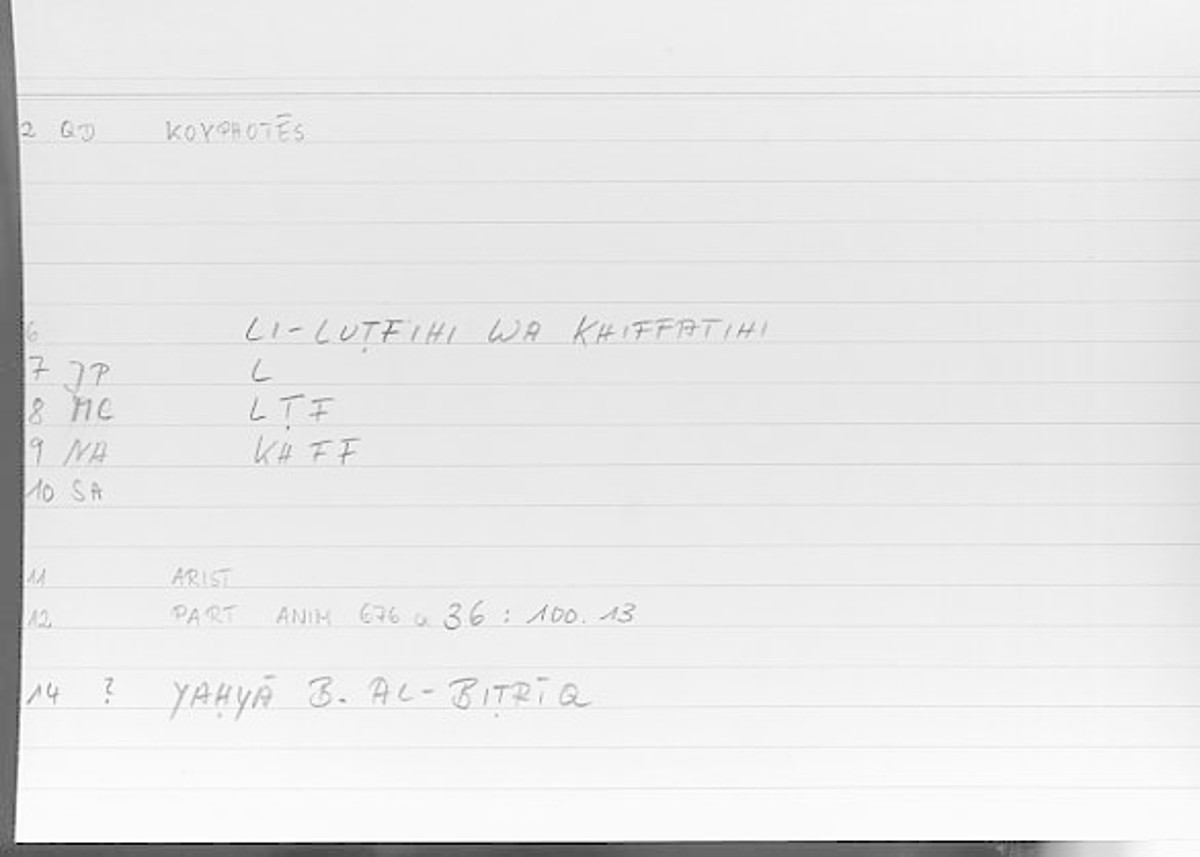 2 QD KOYPHOTĒS
6 LI-LUṬFIHI WA KHIFFATIHI
7 JP L
8 MC L Ṭ F
9 NA KH F F
10 SA
11 ARIST
12 PART ANIM 676 a 36 : 100. 13
14 ? YAḤYĀ B. AL-BIṬRĪQ